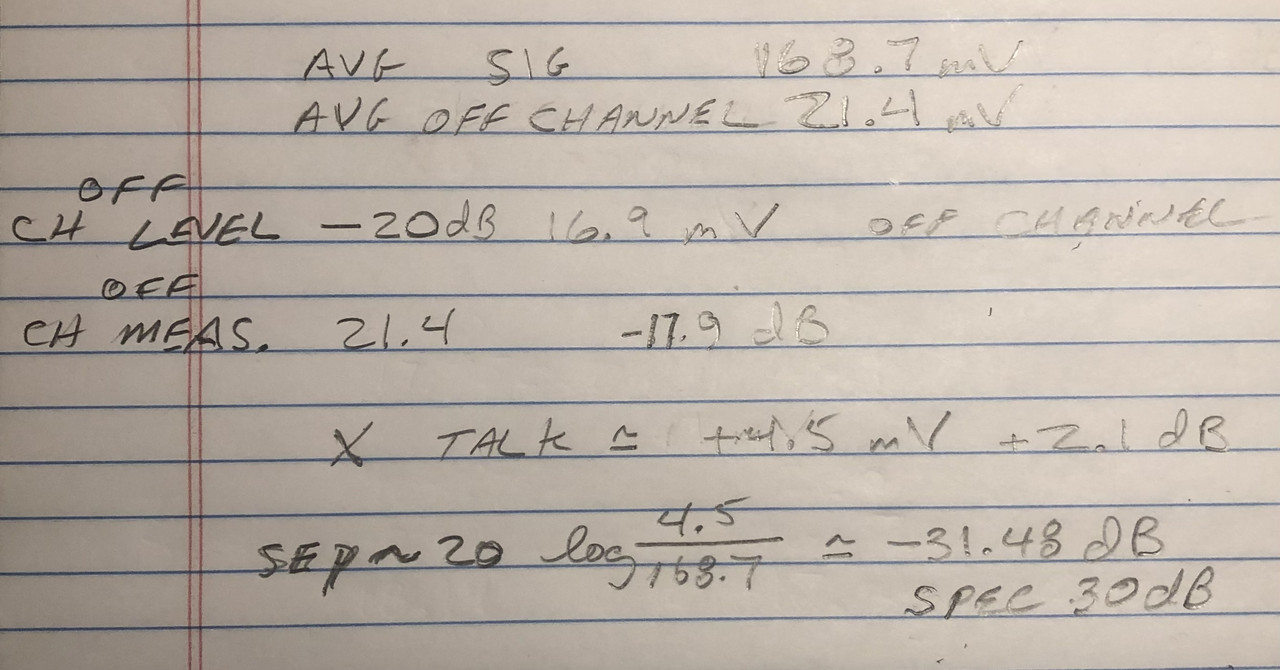 AVG SIG 168.7 mV
AVG OFF CHANNEL 21.4 mV
OFF
CH LEVEL -20dB 16.9 mV OFF CHANNEL
OFF
CH MEAS. 21.4 -17.9 dB
X TALK ≃ +4.5 mV +2.1 dB
SEP ~ 20 log 4.5/168.7 ≃ -31.48 dB
SPEC 30dB